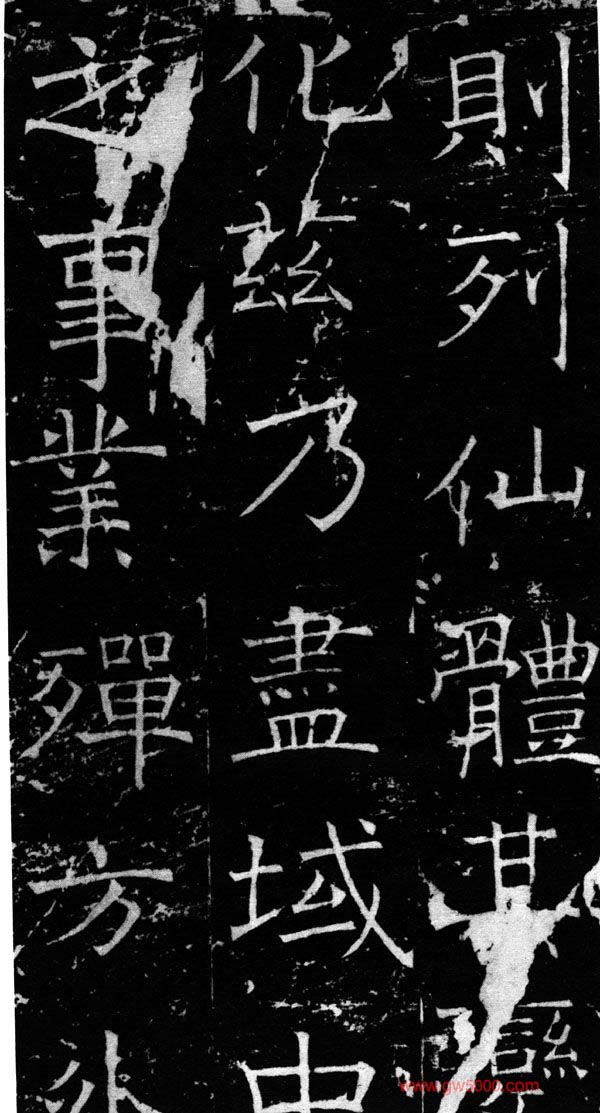 則列仙體其變
化茲乃盡域中
之事業殫方外
www.gw5000.com